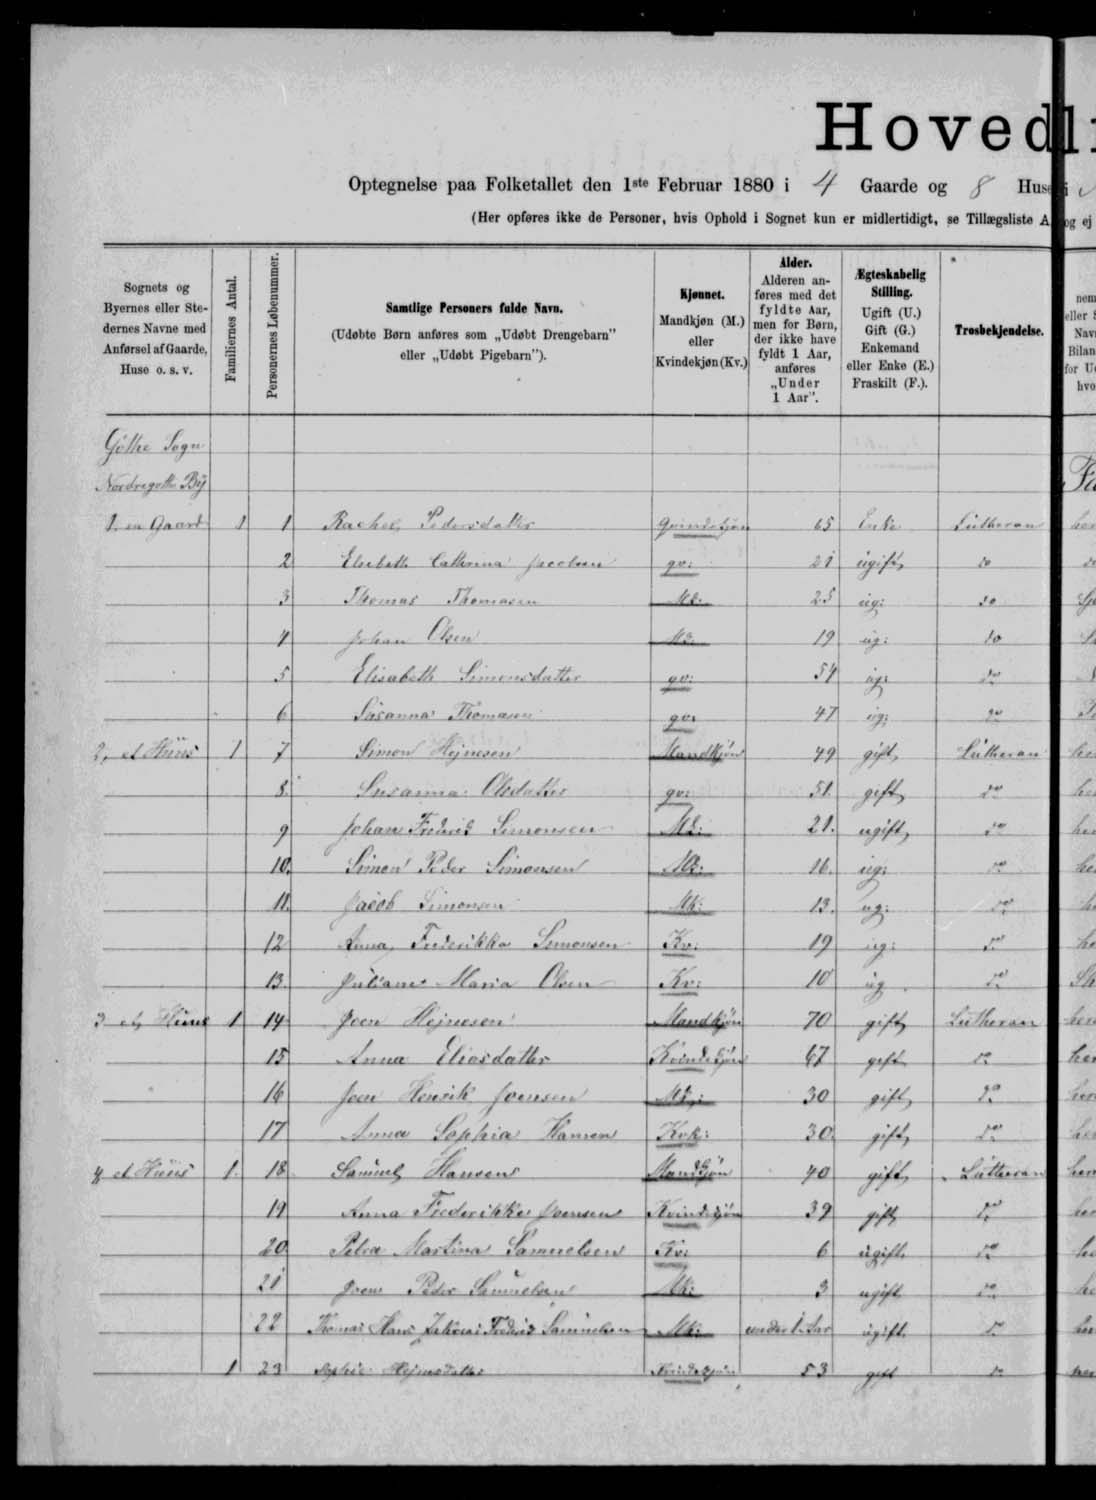 Hovedli
Optegnelse paa Folketallet den 1ste Februar 1880 i 4 Gaarde og 8 Huse i
(Her opføres ikke de Personer, hvis Ophold i Sognet kun er midlertidigt, se Tillægsliste A, og ej
Sognets og Byernes eller Stedernes Navne med Anførsel af Gaarde, Huse o. s. v.
Familiernes Antal.
Personernes Løbenummer.
Samtlige Personers fulde Navn.
(Udøbte Børn anføres som „Udøbt Drengebarn” eller „Udøbt Pigebarn”).
Kjønnet.
Mandkjøn (M.) eller Kvindekjøn (Kv.)
Alder.
Alderen anføres med det fyldte Aar, men for Børn, der ikke have fyldt 1 Aar, anføres „Under 1 Aar”.
Ægteskabelig Stilling.
Ugift (U.) Gift (G.) Enkemand eller Enke (E.) Fraskilt (F.).
Trosbekjendelse.
Göthe Sogn
Nordregöthe Bÿ
1. en Gaard 1 1 Rachel Pedersdatter Qvindekjøn 65 Enke Lutheran
2 Elsebeth Cathrina Jacobsen qv: 21 ugift do
3 Thomas Thomasen Mk: 25 ug: do
4 Johan Olsen Mk: 19 ug: do
5 Elisabeth Simonsdatter qv: 54 ug: do
6 Susanna Thomasen qv: 47 ug: do
2, et Huus 1 7 Simon Hejnesen Mandkjøn 49 gift Lutheran
8. Susanna Olsdatter qv: 51. gift do
9 Johan Fredrik Simonsen Mk: 21. ugift do
10. Simon Peder Simonsen Mk: 16. ug: do
11. Jacob Simonsen Mk: 13. ug: do
12 Anna Frederikka Simonsen Kv: 19 ug: do
13. Juliane Maria Olsen Kv: 10 ug do
3 et Huus 1 14 Joen Hejnesen Mandkjøn 70 gift Lutheran
15 Anna Eliasdatter Kvindekjøn 67 gift do
16 Joen Henrik Joensen Mk: 30 gift do
17 Anna Sophia Hansen Kvk: 30. gift do
4 et Huus 1. 18 Samuel Hansen Mandkjøn 40 gift Lutheran
19 Anna Frederikke Joensen Kvindekjøn 39 gift do
20 Petra Martina Samuelsen Kv: 6 ugift do
21 Joen Peder Samuelsen Mk: 3 ugift do
22 Thomas Hans Fredrik Samuelsen Mk: under 1 Aar ugift do
1 23 Sophie Hejnesdatter Kvindekjøn 53 gift do